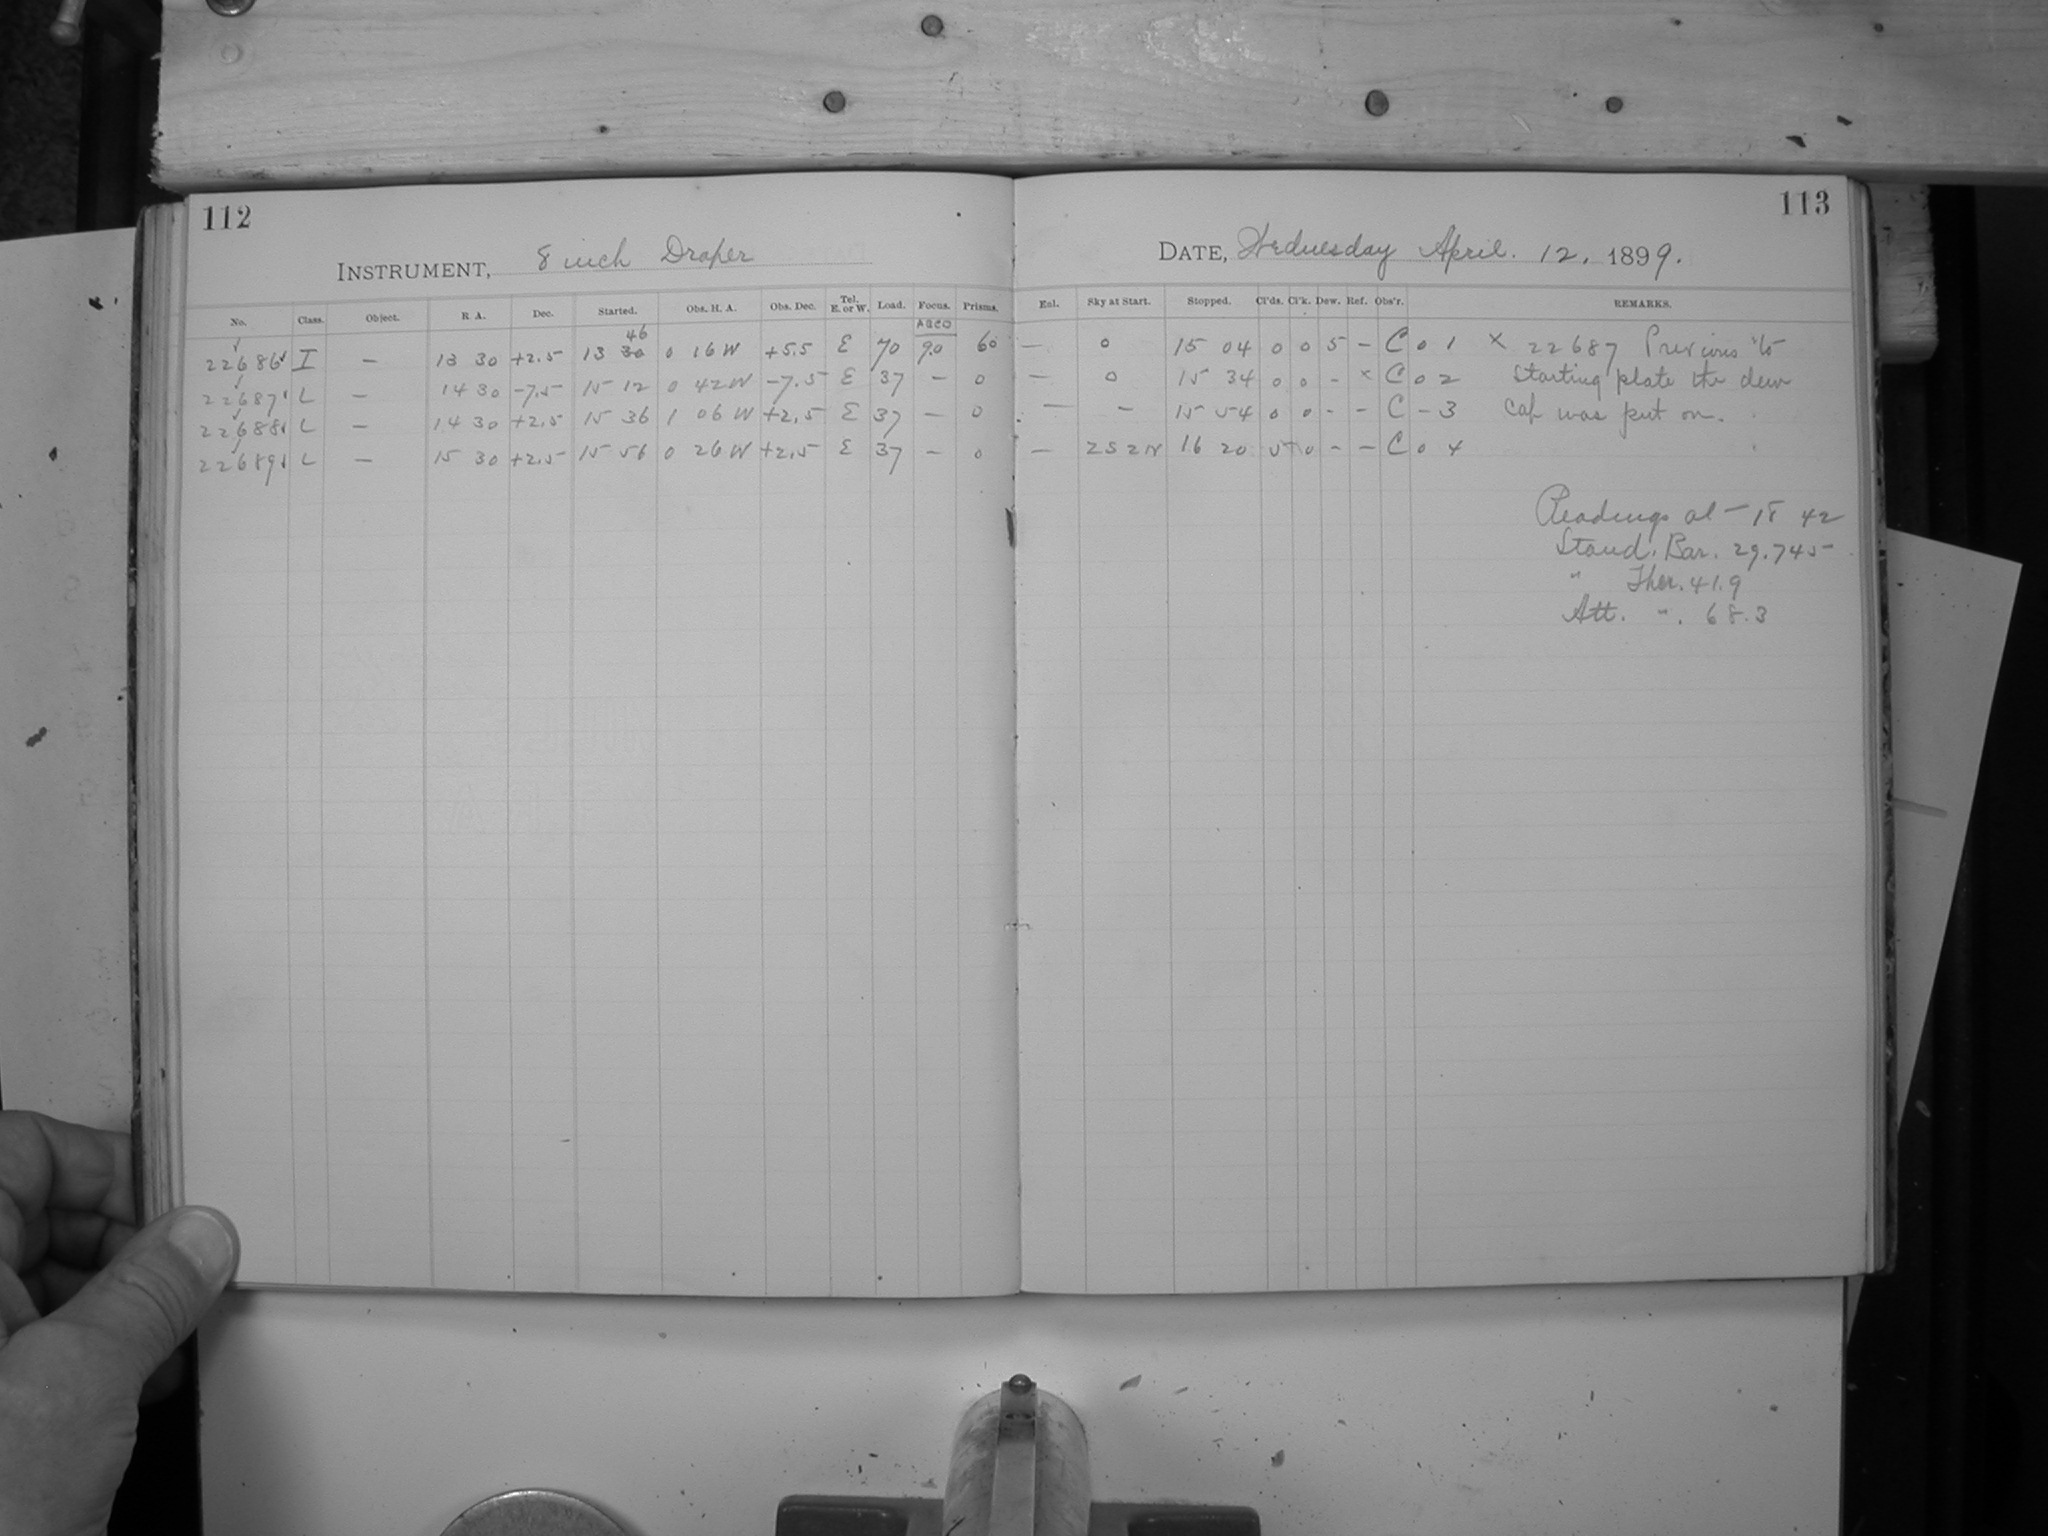 112
INSTRUMENT, 8 inch Draper
No. Class. Object. R. A. Dec. Started. Obs. H. A. Obs. Dec. Tel. E. or W. Load. Focus. Prisms.
ABCD
46
22686 I — 13 30 +2.5 13 30 0 16 W +5.5 E 70 9.0 60
22687 L — 14 30 -7.5 15 12 0 42 W -7.5 E 37 — 0
22688 L — 14 30 +2.5 15 36 1 06 W +2.5 E 37 — 0
22689 L — 15 30 +2.5 15 56 0 26 W +2.5 E 37 — 0
113
DATE, Wednesday April. 12, 1899.
Enl. Sky at Start. Stopped. Cl'ds. Cl'k. Dew. Ref. Obs'r. REMARKS.
— 0 15 04 0 0 5 — C 0 1 × 22687 Previous to
— 0 15 34 0 0 - × C 0 2 starting plate the dew
— — 15 54 0 0 - - C - 3 cap was put on.
— 2S 2N 16 20 5 0 - - C 0 4
Readings at — 15 42
Stand. Bar. 29.745
" Ther. 41.9
Att. ". 68.3